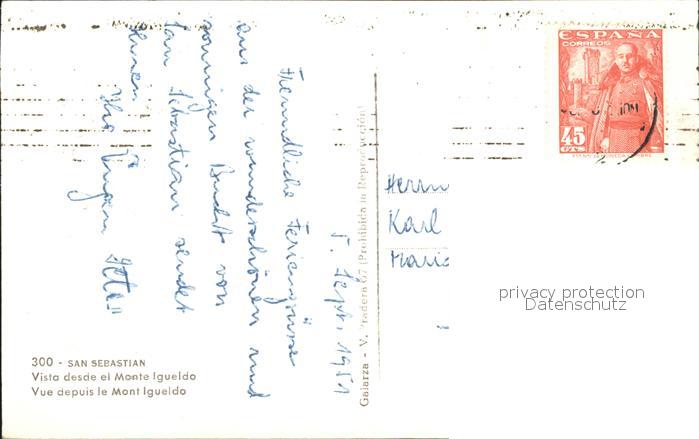 ESPAÑA
CORREOS
45
CTS
7. Sept. 1951
Freundliche Feriengrüsse
aus der wunderschönen und
sonnigen Bucht von
San Sebastian sendet
Ihnen
Ihr Eugen
Herrn
Karl
privacy protection
Datenschutz
Galarza - V. Pradera 67 (Prohibida la Reproducción)
300 - SAN SEBASTIAN
Vista desde el Monte Igueldo
Vue depuis le Mont Igueldo